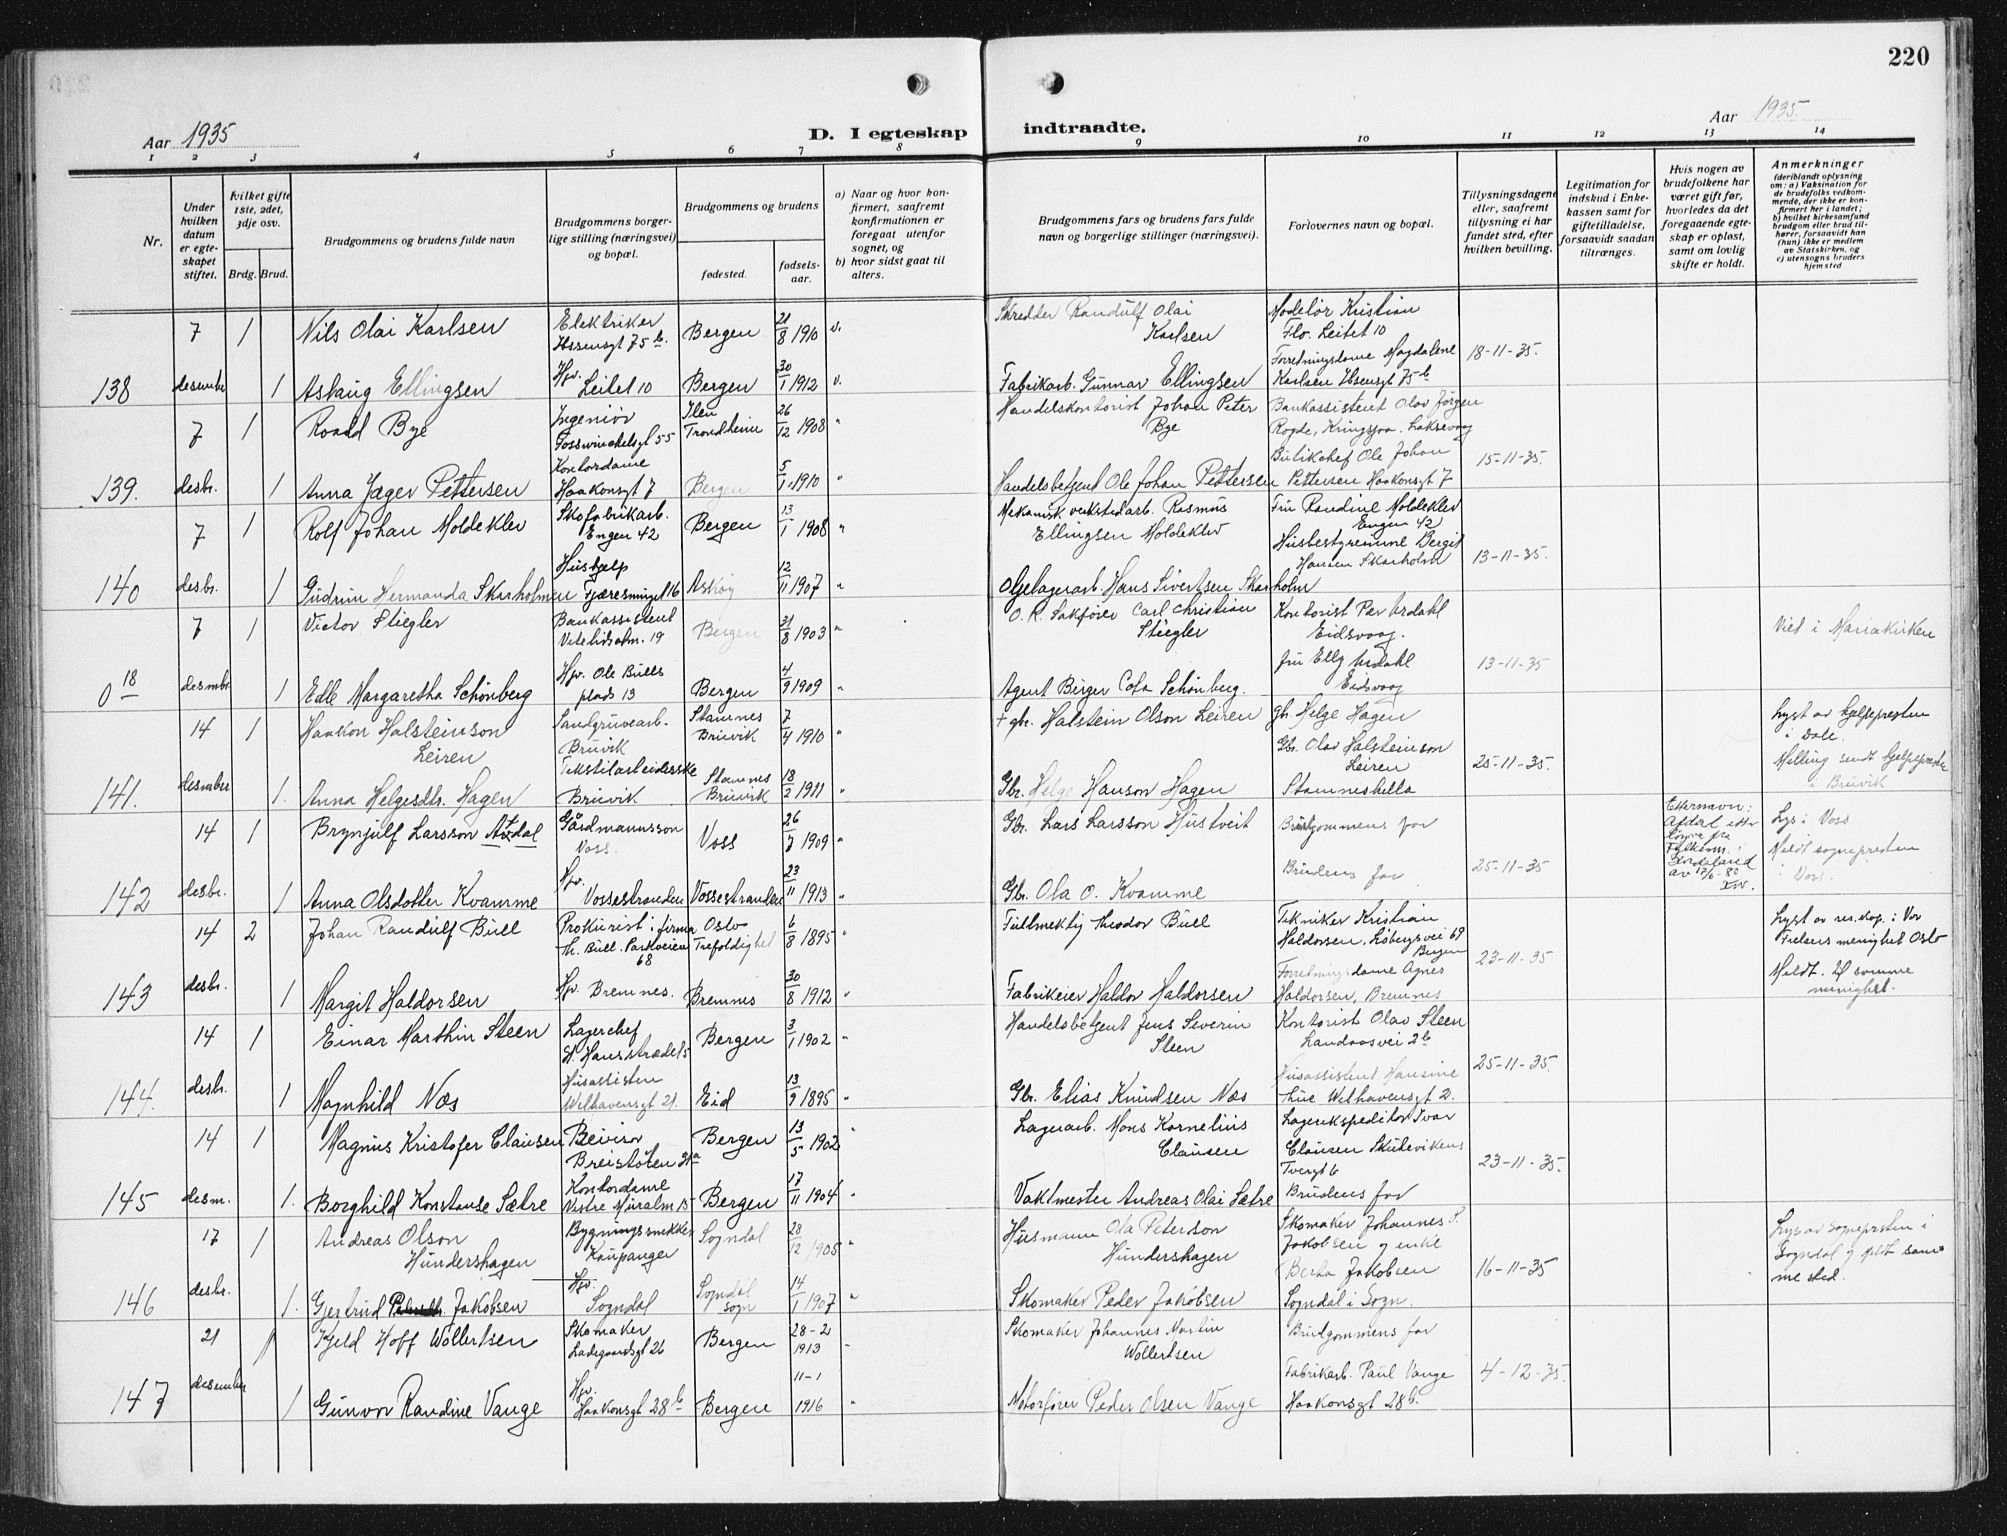 220
Aar 1935
D. I egteskap indtraadte.
Aar 1935.
1 2 3 4 5 6 7 8 9 10 11 12 13 14
Nr.
Under hvilken datum er egteskapet stiftet.
hvilket gifte 1ste, 2det, 3dje osv.
Brdg. Brud.
Brudgommens og brudens fulde navn
Brudgommens borgerlige stilling (næringsvei) og bopæl.
Brudgommens og brudens
fødested.
fødselsaar.
a) Naar og hvor konfirmert, saafremt konfirmationen er foregaat utenfor sognet, og
b) hvor sidst gaat til alters.
Brudgommens fars og brudens fars fulde navn og borgerlige stillinger (næringsvei).
Forlovernes navn og bopæl.
Tillysningsdagene eller, saafremt tillysning ei har fundet sted, efter hvilken bevilling.
Legitimation for indskud i Enkekassen samt for giftetilladelse, forsaavidt saadan tiltrænges.
Hvis nogen av brudefolkene har været gift før, hvorledes da det foregaaende egteskap er opløst, samt om lovlig skifte er holdt.
Anmerkninger (deriblandt oplysning om: a) Vaksination for de brudefolks vedkommende, der ikke er konfirmert her i landet; b) hvilket kirkesamfund brudgom eller brud tilhører, forsaavidt han (hun) ikke er medlem av Statskirken, og c) utensogns bruders hjemsted
7 1 Nils Olai Karlsen Elektriker Ibsensgt 75 b. Bergen 21/8 1910 v. Skredder Randulf Olai Karlsen Modelør Kristian Flo. Leitet 10
138 desember 1 Aslaug Ellingsen Hjv. Leitet 10 Bergen 30/1 1912 v. Fabrikarb. Gunnar Ellingsen Forretningsdame Magdalene Karlsen Ibsensgt 75 b 18-11-35.
7 1 Roald Bye Ingeniør Fosswinckelsgt 55 Ilen Trondheim 26/12 1908 " Handelskontorist Johan Peter Bye Bankassistent Olav Jørgen Rogde, Kringsjaa, Laksevaag
139. desbr. 1 Anna Jæger Pettersen Kontordame Haakonsgt 7 Bergen 5/1 1910 " Handelsbetjent Ole Johan Pettersen Butikchef Ole Johan Pettersen Haakonsgt 7 15-11-35.
7 1 Rolf Johan Moldeklev Skofabrikarb. Engen 42 Bergen 13/1 1908 " Mekanisk verkstedarb. Rasmus Ellingsen Moldeklev Fru Randine Moldeklev Engen 42
140 desbr. 1 Gudrun Hermanda Skarholmen Hushjelp Fjæresmuget 16 Askøy 12/11 1907 " Oljelagerarb. Hans Sivertsen Skarholm Husbestyrerinne Bergit Hansen Skarholm 13-11-35.
7 1 Victor Stiegler Bankassistent Vetrlidsalm. 19 Bergen 31/8 1903 " O. R. Sakfører Carl Christian Stiegler Kontorist Per Urdahl Eidsvaag. Viet i Mariakirken
0 18 desmbr 1 Edle Margaretha Schönberg Hjv. Ole Bulls plads 13 Bergen 4/9 1909 " Agent Birger Schönberg. fru Elly Urdahl Eidsvaag 13-11-35
14 1 Haakon Halsteinson Leiren Sandgruvearb. Bruvik Stamnes Bruvik 7/4 1910 " + gbr. Halstein Olson Leiren gb. Helge Hagen Lyst av hjelpepresten i Dale.
141. desember 1. Anna Helgesdtr. Hagen Tekstilarbeiderske Bruvik Stamnes Bruvik 18/2 1911 " Gbr. Helge Hanson Hagen Gbr. Olav Halsteinson Leiren Stamneshella 25-11-35. Melding sendt hjelpeprest i Bruvik
14 1 Brynjulf Larsson Afdal Gårdmannsson Voss. Voss 26/7 1909 " Gbr. Lars Larsson Hustveit Brudgommens far Etternavn: Afdal etter fra Fylkesm. i Hordaland av 17/6-80 Lys i Voss
142 desbr. 1 Anna Olsdotter Kvamme Hjv. Vossestranden Vossestranden 23/11 1913 " Gbr. Ola O. Kvamme Brudens far 25-11-35 Meldt sognepresten i Voss.
14 2 Johan Randulf Bull Prokurist i firma Th. Bull. Parkveien 68 Oslo Trefoldighet 6/8 1895 " Fullmektig Theodor Bull Tekniker Kristian Haldorsen, Løbergsvei 69 Bergen Lyst av res. kap. i Vor Frelsers menighet Oslo
143 desbr. 1 Margit Haldorsen Hjv. Bremnes. Bremnes 30/8 1912 " Fabrikeier Haldor Haldorsen Forretningsdame Agnes Haldorsen, Bremnes 23-11-35 Meldt. til samme menighet.
14 1 Einar Marthin Steen Lagerchef St. Hansstrædet 5 Bergen 3/1 1902 " Handelsbetjent Jens Severin Steen Kontorist Olav Steen Landaasvei 2 b
144. desbr. 1 Magnhild Næs Husassisten Welhavensgt 21. Eid 13/9 1895 " Gbr. Elias Knudsen Næs Husassistent Hansine Thue Welhavensgt 2. 25-11-35.
14 1 Magnus Kristofer Clausen Revisor Breistølen 31a Bergen 13/5 1902 " Lagerarb. Mons Kornelius Clausen Lagerekspeditør Ivar Clausen Skutevikens Tvergt 6
145 desm. 1. Borghild Konstanse Sætre Kontordame Vestre Muralm 15 Bergen 17/11 1904 " Vaktmester Andreas Olai Sætre Brudens far 23-11-35.
17 1 Andreas Olson Hundershagen Bygningssnekker Kaupanger Sogndal 28/12 1905 " Husmann Ola Peterson Hundershagen Skomaker Johannes P. Jakobsen og enke Lys av sognepresten i Sogndal og meldt samme sted.
146 desbr. 1. Gjertrud Jakobsen Hjv. Sogndal Sogndal Sogn 14/1 1907 " Skomaker Peder Jakobsen Berta Jakobsen Sogndal i Sogn. 16-11-35
21 1 Kjeld Hoff Wollertsen Skomaker Ladegaardsgt 26 Bergen 28-2 1913 " Skomaker Johannes Martin Wollertsen Brudgommens far
147 desember 1 Gunvor Randine Vange Hjv. Haakonsgt 28 b Bergen 11-1 1916 " Motorfører Peder Olsen Vange Fabrikarb. Paul Vange Haakonsgt 28 b. 4-12-35.